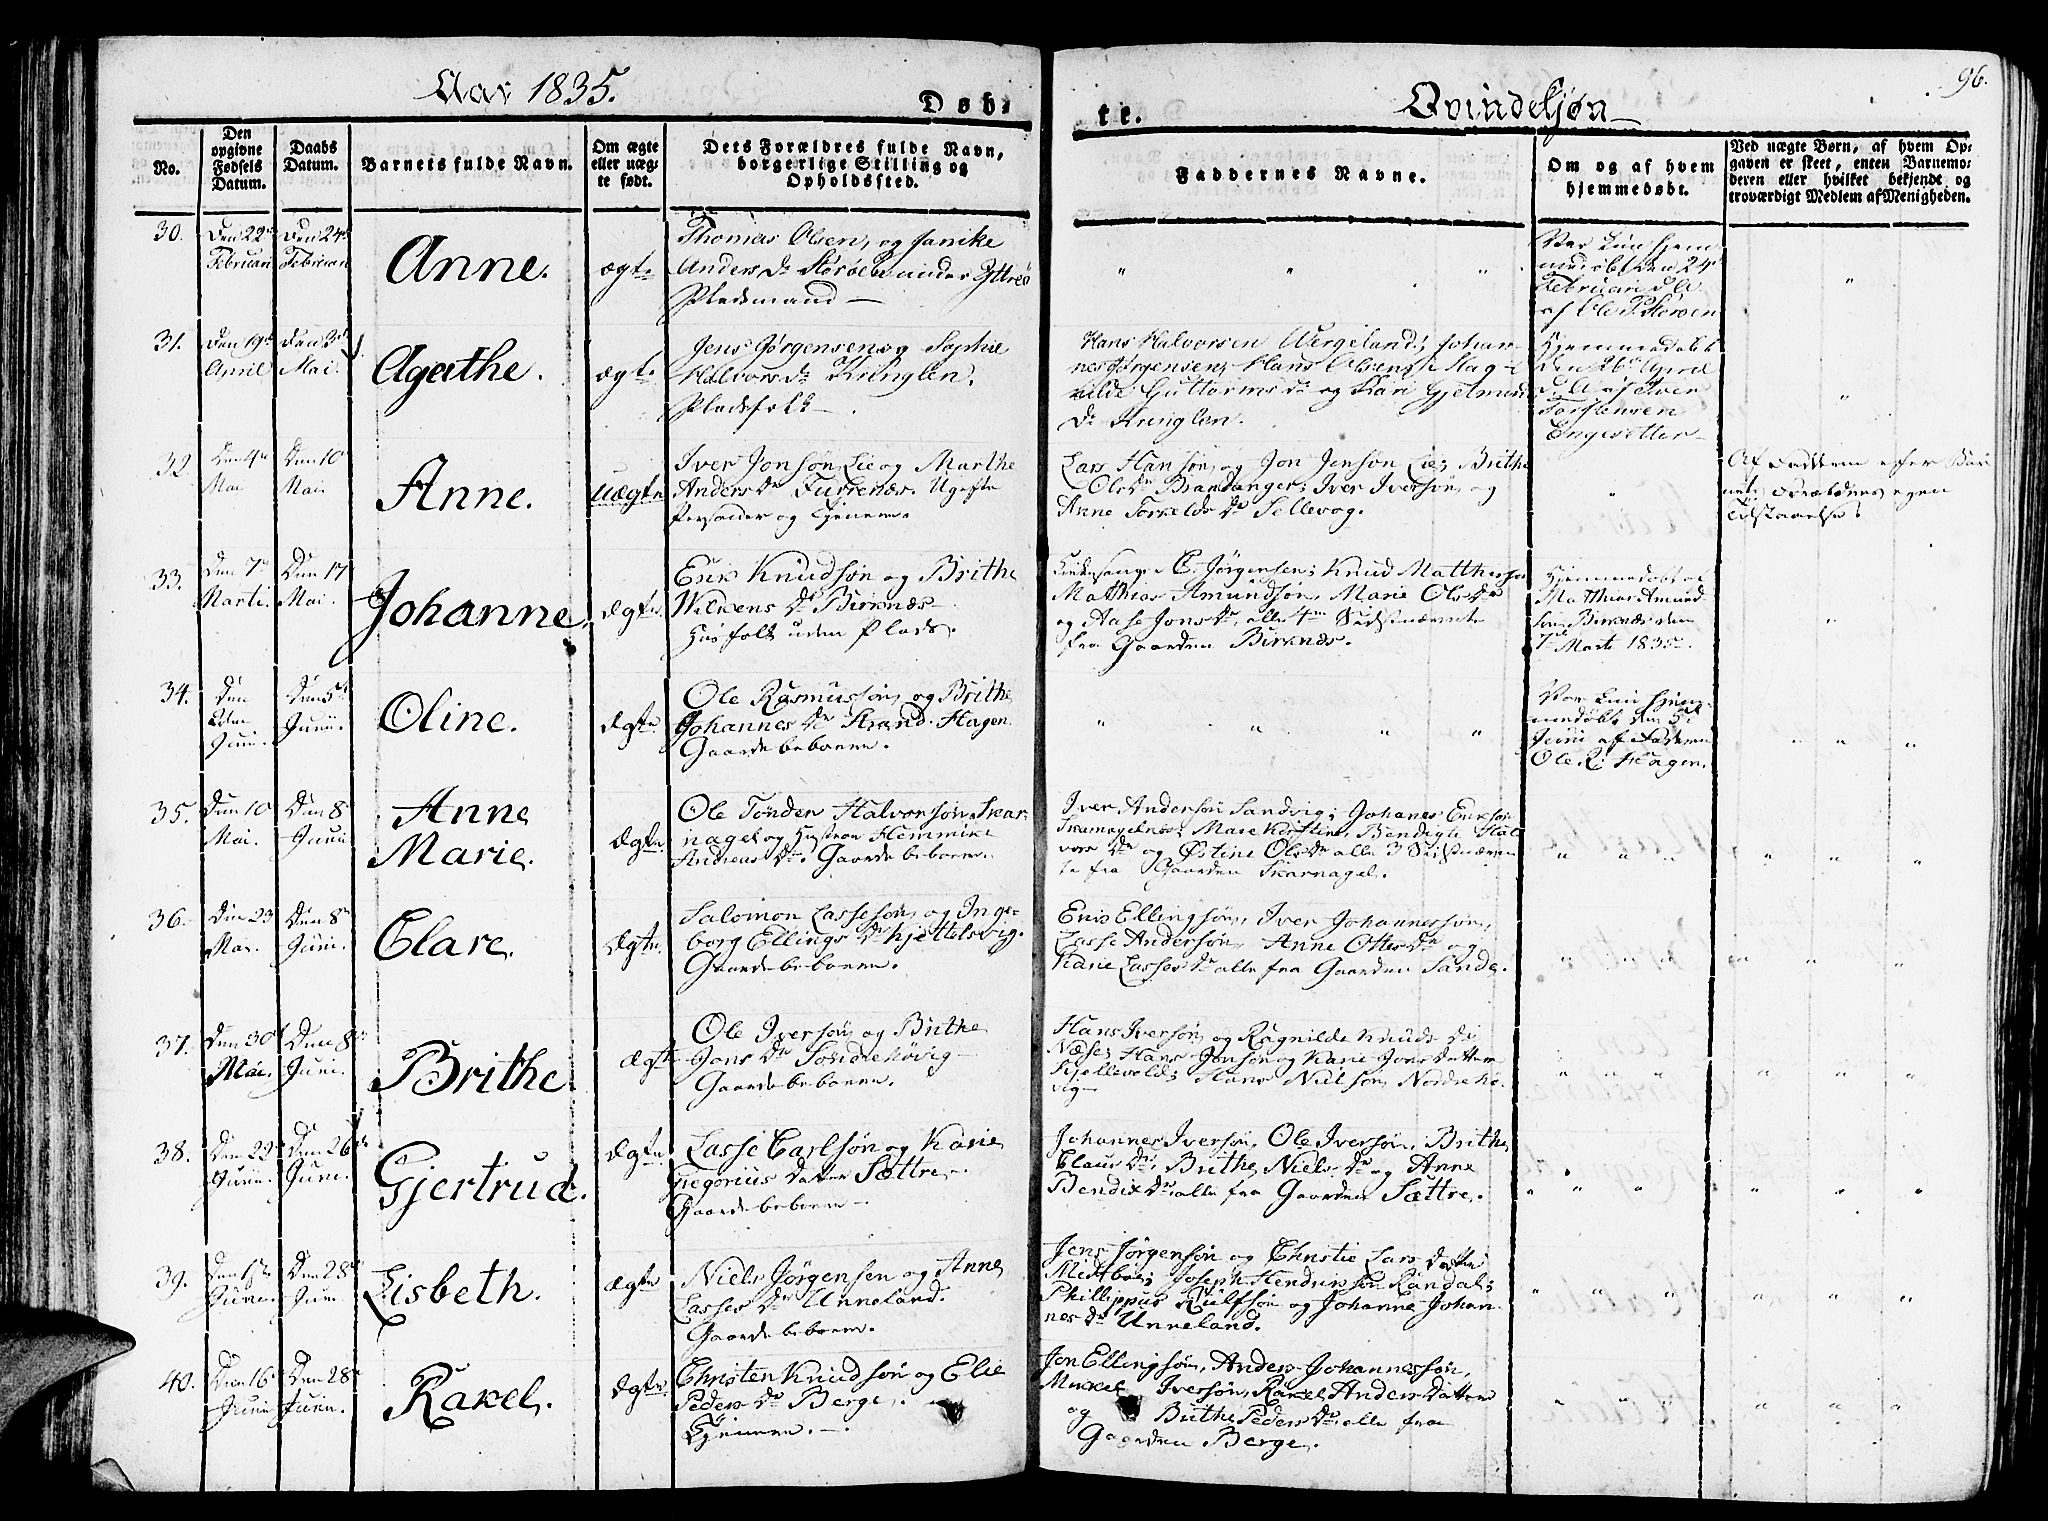 Aar 1835.
Døb-
te.
Qvindekjøn
96.
No.
Den
opgivne
Fødsels
Datum.
Daabs
Datum.
Barnets fulde Navn.
Om ægte
eller uæg-
te født.
Dets Forældres fulde Navn,
borgerlige Stilling og
Opholdssted.
Faddernes Navne.
Om og af hvem
hjemmedøbt.
Ved uægte Børn, af hvem Op-
gaven er skeet, enten Barnemo-
deren eller hvilket bekjende og
troværdigt Medlem af Menigheden.
30.
Den 22
Februari
Den 24
Februari
Anne.
ægte
Thomas Olsen, og Janike
Anders Dr Størøen under Yttreø
Pladsmand
Var kun hjem-
medøbt den 24
Februari
af Ole P. Størøen
31.
Den 19de
April
Den 3die
Mai
Agathe.
ægte
Jens Jørgensen og Sophie
Halvors Dr Kringlen.
Pladsfolk
Hans Halvorsen Wergeland; Johan-
nes Jørgensen; Hans Olsen; Rag-
nilde Guttorms Dr og Kari Gjelmun
Dr Kringlen.
Hjemmedøbt
den 26 April
af Iver
Torstensen
Engesetter
32
Den 4de
Mai
Den 10
Mai
Anne.
uægte
Iver Jonsøn Lie og Marthe
Anders Dr Furrenæs. Ugifte
Personer og tjenere.
Lars Hansøn, og Jon Jensøn Lie; Brithe
Ols Dr Brandanger; Iver Iversøn, og
Anne Torkelds Dr Sellevog.
Af Fadderne efter Bar
nets Forældres egen
Tilstaaelse.
33.
Den 7de
Marti
Den 17
Mai
Johanne.
Ægte
Erik Knudsøn og Brithe
Wilkens Dr Birknæs
Huusfolk uden Plads.
Kirkesanger C. Jørgensen; Knud Matthiessøn
Matthias Amundsøn, Marie Ols Dr
og Aase Jons Dr, alle 4re Sidstnævnte
fra Gaarden Birknæs.
Hjemmedøbt af
Matthias Amund-
søn Birknæs den
7de Marti 1835
34.
Den
Juni.
Den 5te
Juni.
Oline.
Ægte
Ole Rasmussøn, og Brithe
Johannes Dr Strand-Hagen
Gaardebeboere.
Var kun hjem-
medøbt den 5te
Juni af Faderen
Ole R. Hagen.
35.
Den 10
Mai.
Den 8
Juni
Anne
Marie.
Ægte
Ole Tønder Halvorsøn Skar-
nagel og Hustroe Hemmike
Andreas Dr. Gaardebeboere.
Iver Andersøn Sandvig; Johanes Eriksøn
Skarnagelnæs; Mare Kristine, Bendigte Hal
vors Dr og Østine Ols Dr alle 3 Sidstnævn
te fra Gaarden Skarnagel.
36.
Den 23
Mai.
Den 8de
Juni.
Clare.
Ægte
Salomon Lassesøn, og Inge-
borg Ellings Dr Kjettelsvig.
Gaardebeboere.
Erik Ellingsøn, Iver Johannessøn,
Lasse Andersøn, Anne Ottes Dr og
Karie Lasses Dr alle fra Gaarden Sande.
37.
Den 30te
Mai.
Den 8de
Juni.
Brithe
ægte
Ole Iversøn og Brithe
Jons Dr Søndrehøvig
Gaardebeboere.
Hans Iversøn, og Ragnilde Knuds Dr
Næse; Hans Jonsøn og Karie Jons Datter
Kjellevold; Hans Nielsøn, Nordrehø-
vig
38.
Den 23
Juni.
Den 26de
Juni.
Gjertrud.
Ægte
Lasse Carlsøn og Karie
Gregorius Datter Sættre
Gaardebeboere
Johannes Iversøn, Ole Iversøn, Brithe
Claus Dr, Brithe Niels Dr og Anne
Bendix Dr, alle fra Gaarden Sættre.
39.
Den 1ste
Juni.
Den 28de
Juni
Lisbeth.
ægte
Niels Jørgensen og Anne
Lasses Dr Unneland.
Gaardebeboere.
Jens Jørgensøn og Christie Lars Datter
Midtbøe; Joseph Hendriksøn Røndal;
Phillippus Rulfsøn og Johanne Johan-
nes Dr Unneland.
40.
Den 16
Juni
Den 28de
Juni.
Rakel.
Ægte
Christen Knudsøn og Elie
Peders Dr Berge.
Tjenere.
Jon Ellingsøn, Anders Johannessøn,
Mikkel Iversøn, Rakel Anders Datter
og Brithe Peders Dr, alle fra
Gaarden Berge.